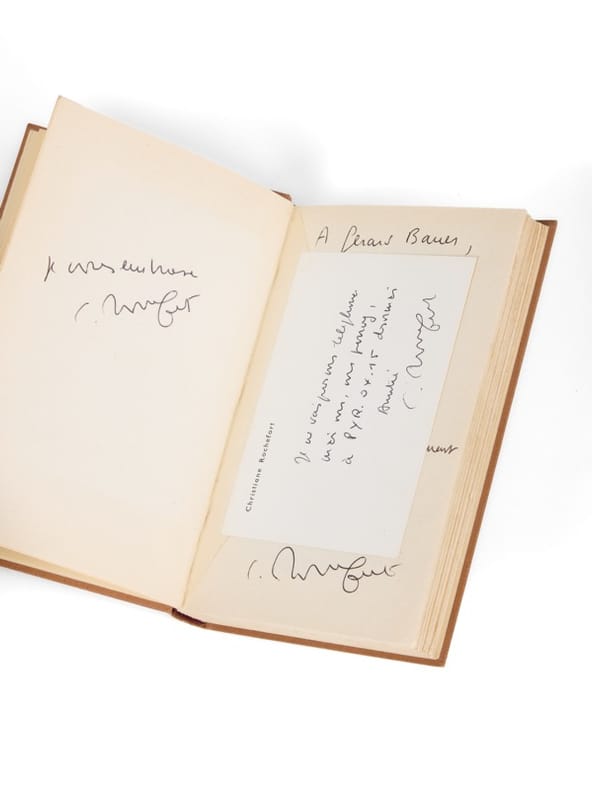 Je vous embrasse
C. Rochefort
A Gérard Bauer,
Christiane Rochefort
Je ne vais pas vous téléphoner
moi
à PYR. 04.15
Amitié
C. Rochefort
ment
C. Rochefort